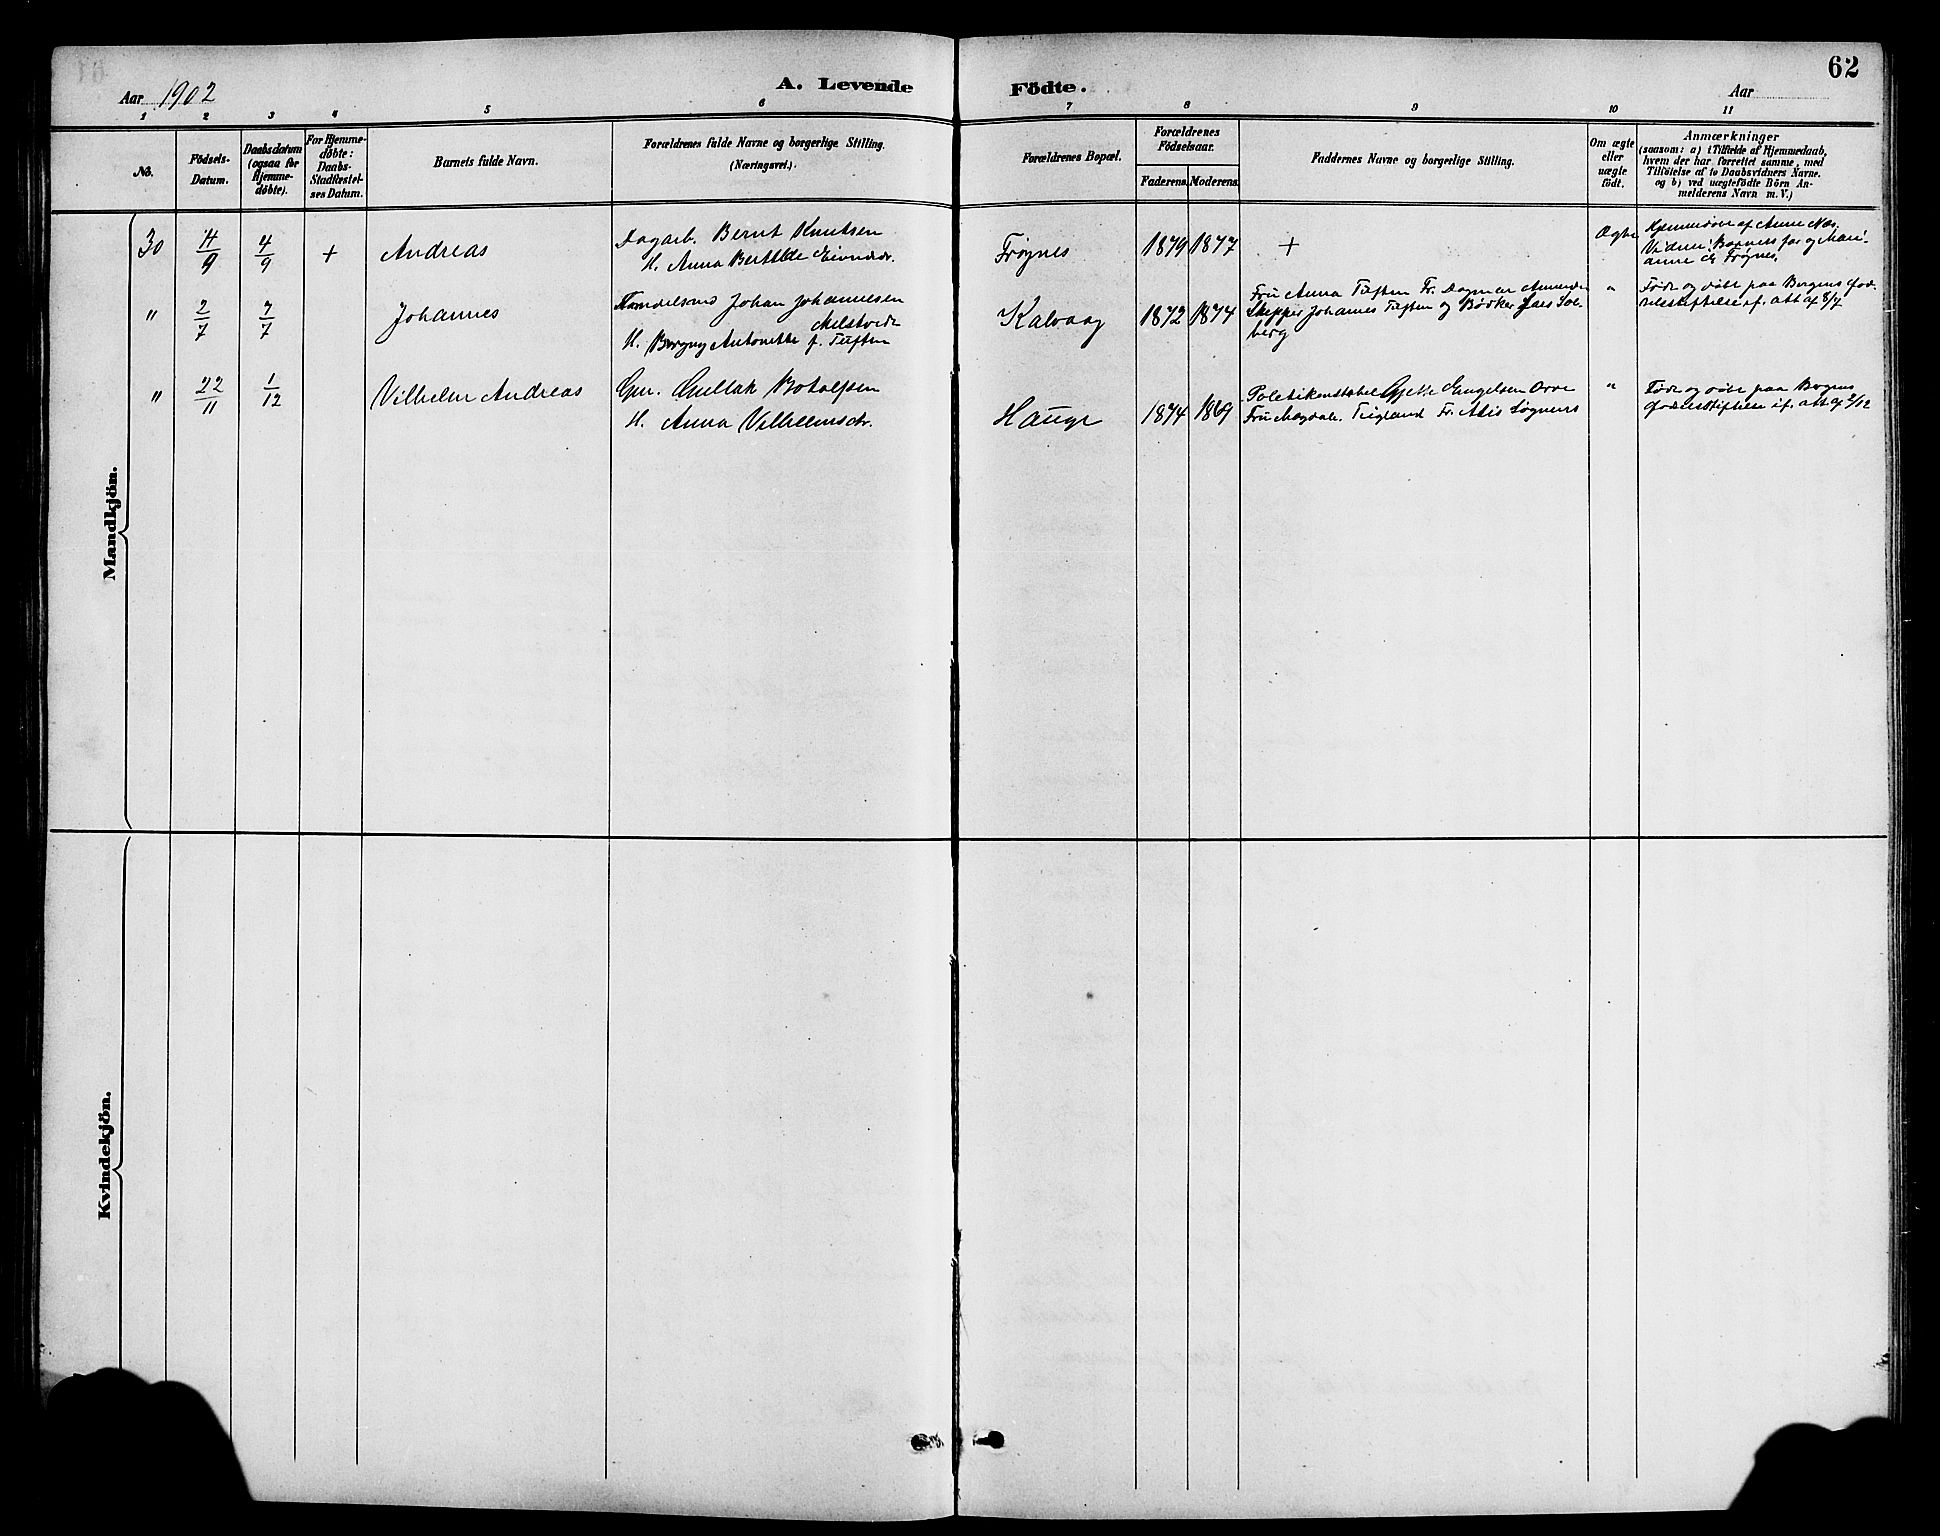 62
Aar 1902
A. Levende Födte.
Aar
1 2 3 4 5 6 7 8 9 10 11
No.
Födsels-
Datum.
Daabsdatum
(ogsaa for
Hjemme-
døbte).
For Hjemme-
døbte:
Daabs-
Stadfestel-
ses Datum.
Barnets fulde Navn.
Forældrenes fulde Navne og borgerlige Stilling.
(Næringsvei.)
Forældrenes Bopæl.
Forældrenes
Födselsaar.
Faderens. Moderens.
Faddernes Navne og borgerlige Stilling.
Om ægte
eller
uægte
født.
Anmærkninger
(saasom: a) i Tilfælde af Hjemmedaab,
hvem der har forrettet samme, med
Tilföielse af to Daabsvidners Navne.
og b) ved uægtefödte Börn An-
melderens Navn m. V.)
Mandkjön.
30 4/9 4/9 + Andreas
Dagarb. Bernt Knutsen
H. Anna
Frøgnes 1879 1877 + Ægte
Hjemmedøbt af Anne
Vidner: Barnets far og Mari-
anne Frøgnes.
" 2/7 7/7 Johannes
Johan Johannesen
H. Antonette f. Tuften
Kalvaag 1872 1874
Fru Anna Tuften Fr. Dagmar
Skipper Johannes Tuften og Bødker Lars Sol-
berg
"
Født og døbt paa Bergens fød-
selsstiftelse if. att af 8/7
" 22/11 1/12 Vilhelm Andreas
Gm. Gullak Botolfsen
H. Anna Vilhelmsdr.
Hauge 1874 1869
Politikonstabel Engelsen
Fru Teigland Fr.
"
Født og døbt paa Bergens
fødselsstiftelse if. att af 2/12
Kvindekjön.